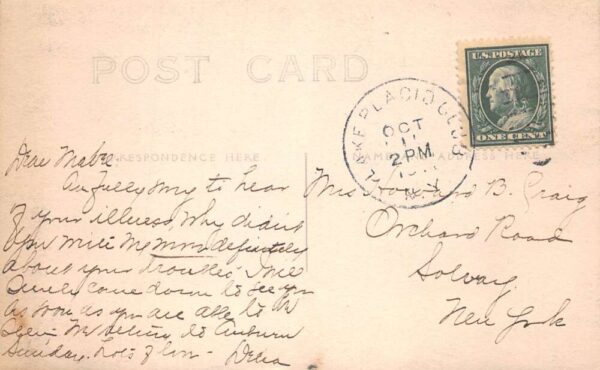 POST CARD
U.S. POSTAGE
ONE CENT
LAKE PLACID CLUB
OCT
11
2 PM
N.Y.
CORRESPONDENCE HERE
NAME AND ADDRESS HERE
Dear Mabel
Awfully sorry to hear
of your illness, why didn't
you write me more definitely
about your trouble. I will
surely come down to see you
as soon as you are able to
to Auburn
Sunday. Lots of love - Delia
Mrs Howard B. Craig
Orchard Road
Solvay
New York